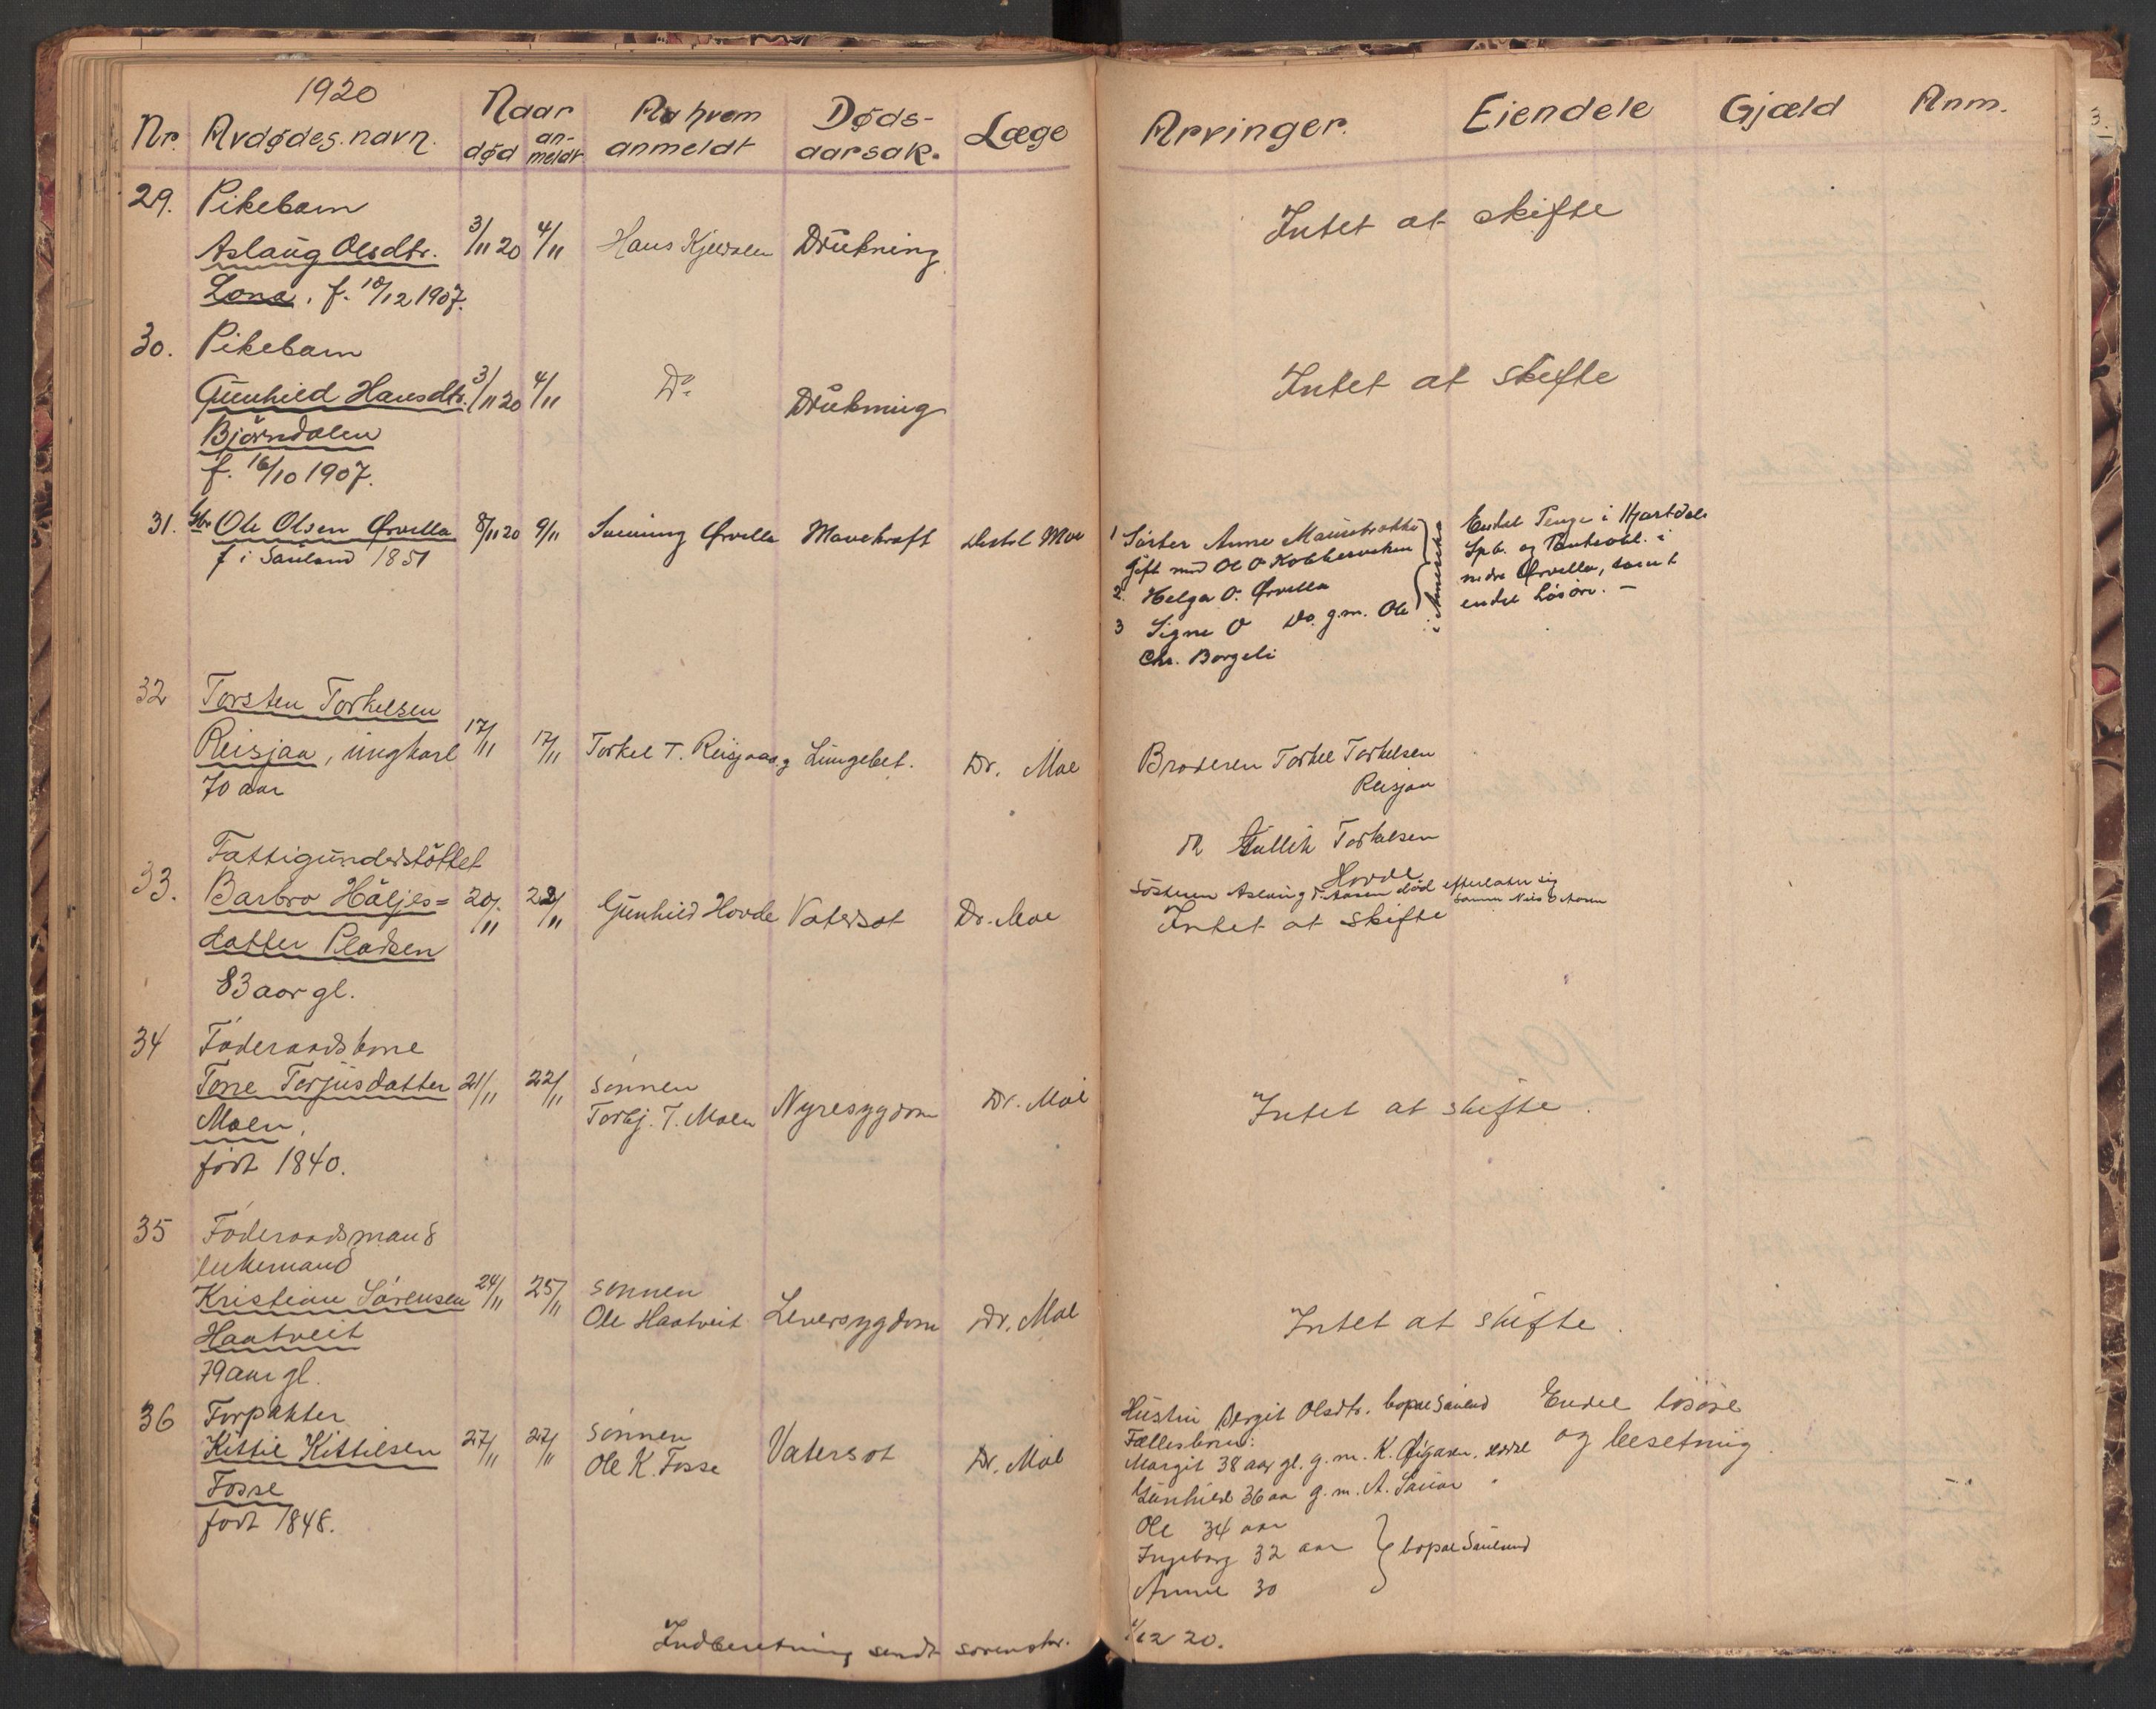 1920
Nr. Avdødes navn. Naar død anmeldt Av hvem anmeldt Dødsaarsak. Læge Arvinger. Eiendele Gjæld Anm.
29. Pikebarn
Aslaug Olsdtr. 3/11 20 4/11 Hans Drukning
Lona, f. 10/12 1907.
Intet at skifte
30. Pikebarn
Gunhild Hansdtr. 3/11 20 4/11 Do. Drukning
Bjørndalen
f. 16/10 1907.
Intet at skifte
31. Gbr. Ole Olsen Ørvella 8/11 20 9/11 Ørvella Mavekræft Distrl. Moe
f i Sauland 1851
1 Søster Anne
gift med Ol O
2. Helga O. Ørvella
3 Signe O Do. g.m. Ole
Chr. Borgeli
i Amerika
Endel Penge i Hjartdal
Spb. og Panteobl. i
nedre Ørvella, samt
endel Løsøre. –
32 Torsten Torkelsen
Reisjaa, ungkarl 17/11 17/11 Torkel T. Reisjaa Lungebet. Dr. Moe
70 aar
Broderen Torkel Torkelsen
Reisjaa
Do Gullik Torkelsen
Hovde
Søsteren Aslaug T. Aasen død efterlater sig
sønnen Nils O Aasen
33. Fattigunderstøttet
Barbro Håljes= 20/11 22/11 Gunhild Hovde Vatersot Dr. Moe
datter Pladsen
83 aar gl.
Intet at skifte
34 Føderaadskone
Tone Torjusdatter 21/11 22/11 sønnen
Moen, Torbj. T. Moen Nyresygdom Dr. Moe
født 1840.
Intet at skifte.
35 Føderaadsmand
enkemand
Kristian Sørensen 24/11 25/11 sønnen
Haatveit Ole Haatveit Leversygdom Dr. Moe
79 aar gl.
Intet at skifte.
36 Forpakter
Kittil Kittilsen 27/11 27/11 sønnen
Fosse Ole K. Fosse Vatersot Dr. Moe
født 1848.
Hustru Bergit Olsdtr. bopæl Sauland
Fællesbørn:
Margit 38 aar gl. g.m. K.
Gunhild 36 aar g.m. A. Sauar "
Ole 34 aar
Ingeborg 32 aar } bopæl Sauland
Anne 30
Endel løsøre
og besetning.
Indberetning sendt sorenskr. 1/12 20.